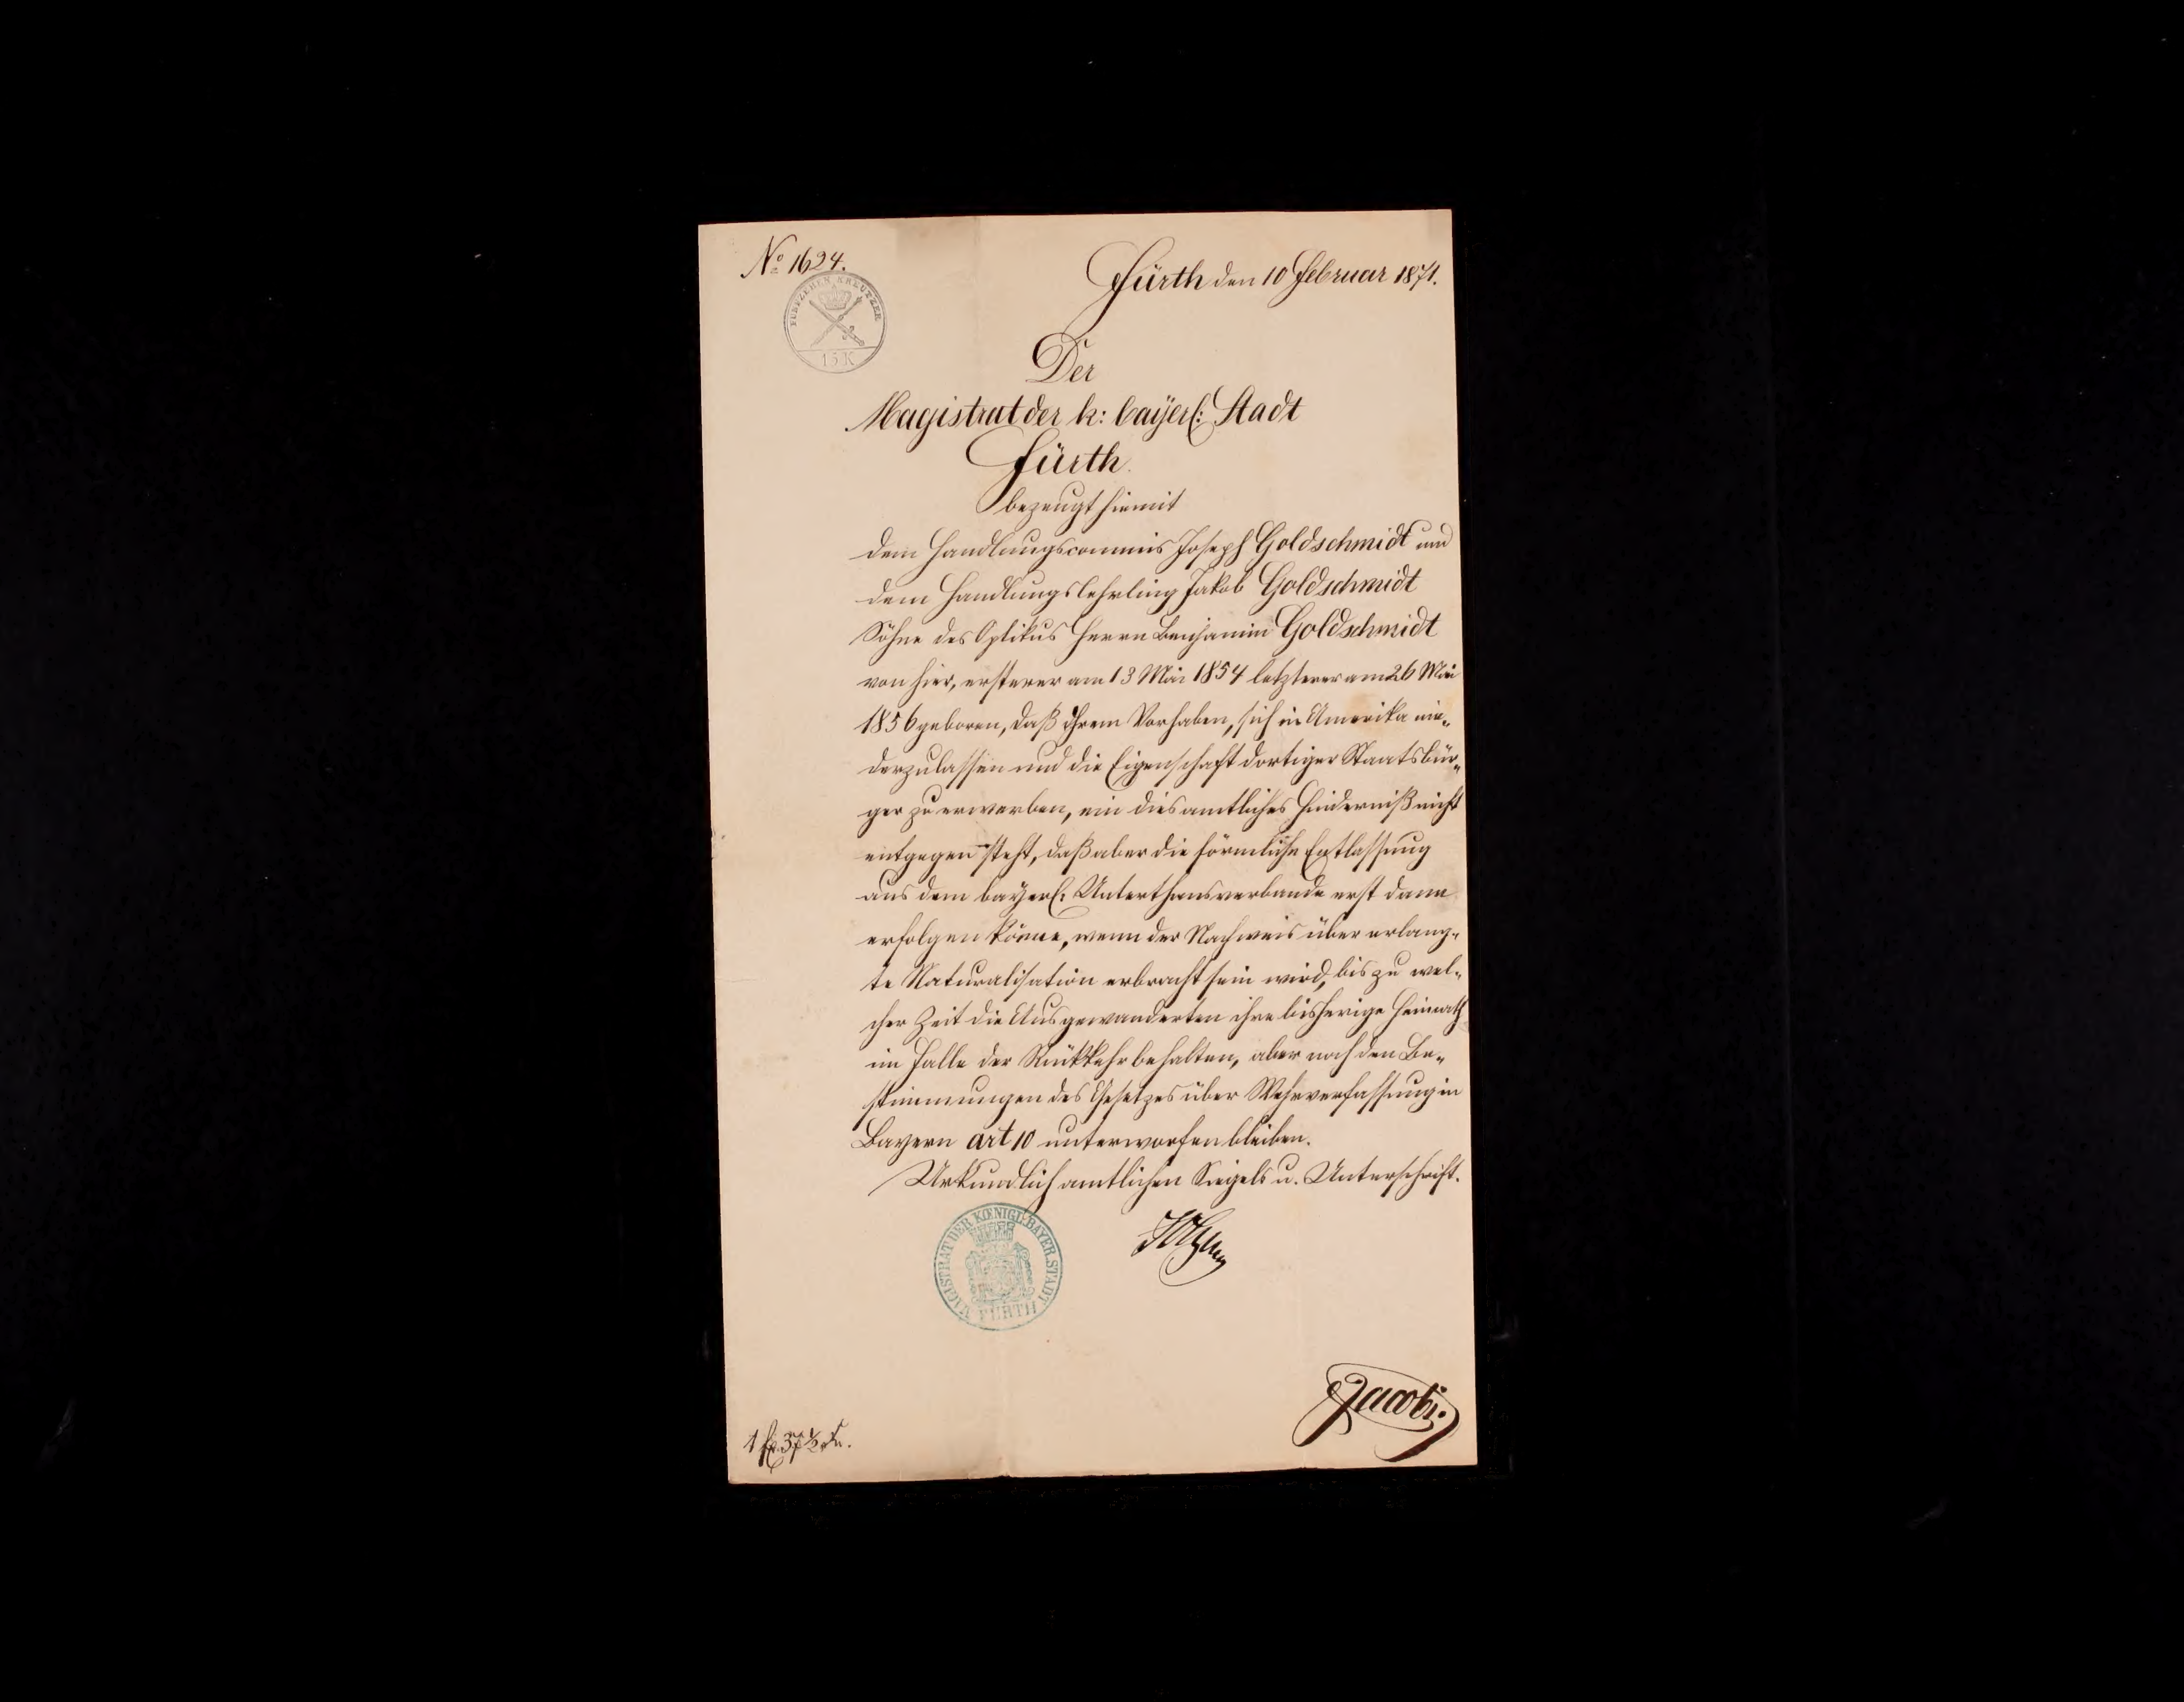 No 1624.
Fürth den 10 Februar 1871.
FÜNFZEHEN KREUTZER
15 K
Der
Magistrat der k: bayerl: Stadt
Fürth
bezeugt hiemit
dem Handlungscommis Joseph Goldschmidt und
dem Handlungslehrling Jakob Goldschmidt
Söhne des Optikus Herrn Benjamin Goldschmidt
von hier, ersterer am 13 Mai 1854 letzterer am 26 Mai
1856 geboren, daß ihrem Vorhaben, sich in Amerika nie-
derzulassen und die Eigenschaft dortiger Staatsbür-
ger zu erwerben, ein diesamtliches Hinderniß nicht
entgegen steht, daß aber die förmliche Entlassung
aus dem bayerl: Unterthansverbande erst dann
erfolgen könne, wenn der Nachweis über erlang-
te Naturalisation erbracht sein wird, bis zu wel-
cher Zeit die Ausgewanderten ihre bisherige Heimath
im Falle der Rückkehr behalten, aber nach den Be-
stimmungen des Gesetzes über Wehrverfassung in
Bayern art 10 unterworfen bleiben.
Urkundlich amtlichen Siegels u. Unterschrift.
MAGISTRAT DER KŒNIGL. BAYER. STADT
FÜRTH
Jacobi.
1 fl 37 ½ Kr.